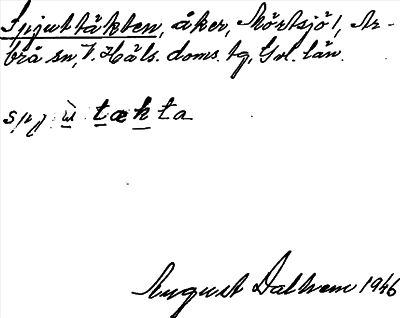 Spjuttäkten, åker, Mörtsjö 1, Ar-
brå sn, V. Häls. doms. tg, Gvl. län.
spjùtækta
August Dalhem 1946